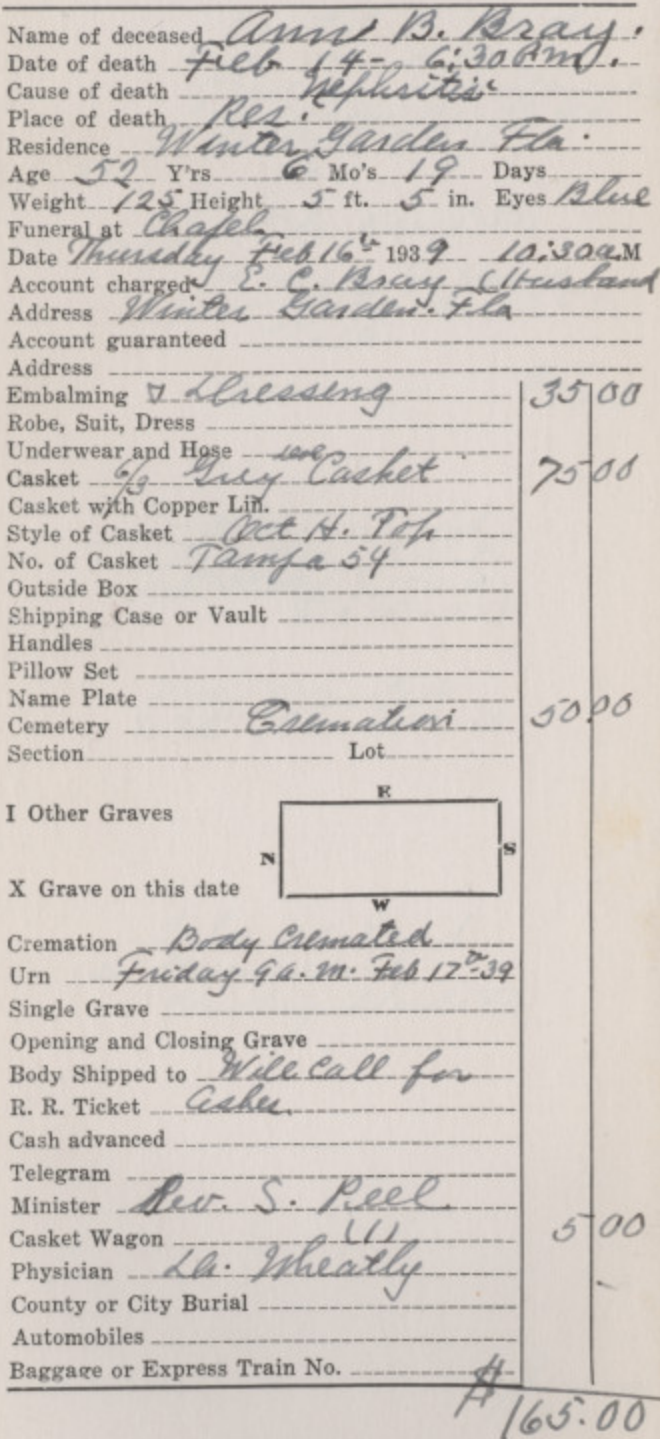 Name of deceased Ann B. Bray.
Date of death Feb 14 - 6:30 P.m.
Cause of death Nephritis
Place of death Res.
Residence Winter Garden Fla.
Age 52 Y'rs 6 Mo's 19 Days
Weight 125 Height 5 ft. 5 in. Eyes Blue
Funeral at Chapel
Date Thursday Feb 16th 1939 10:30 a.M
Account charged E. C. Bray (Husband
Address Winter Garden. Fla
Account guaranteed
Address
Embalming & Dressing 35 00
Robe, Suit, Dress
Underwear and Hose
Casket 6/3 Grey Casket 75 00
Casket with Copper Lin.
Style of Casket Oct H. Top
No. of Casket Tampa 54
Outside Box
Shipping Case or Vault
Handles
Pillow Set
Name Plate
Cemetery Cremation 50 00
Section Lot
E
I Other Graves
N S
X Grave on this date
W
Cremation Body Cremated
Urn Friday 9 a.m. Feb 17th-39
Single Grave
Opening and Closing Grave
Body Shipped to Will call for
R. R. Ticket ashes.
Cash advanced
Telegram
Minister Rev. S. Peel
Casket Wagon (1) 5 00
Physician Dr. Wheatly
County or City Burial
Automobiles
Baggage or Express Train No.
$ 165.00